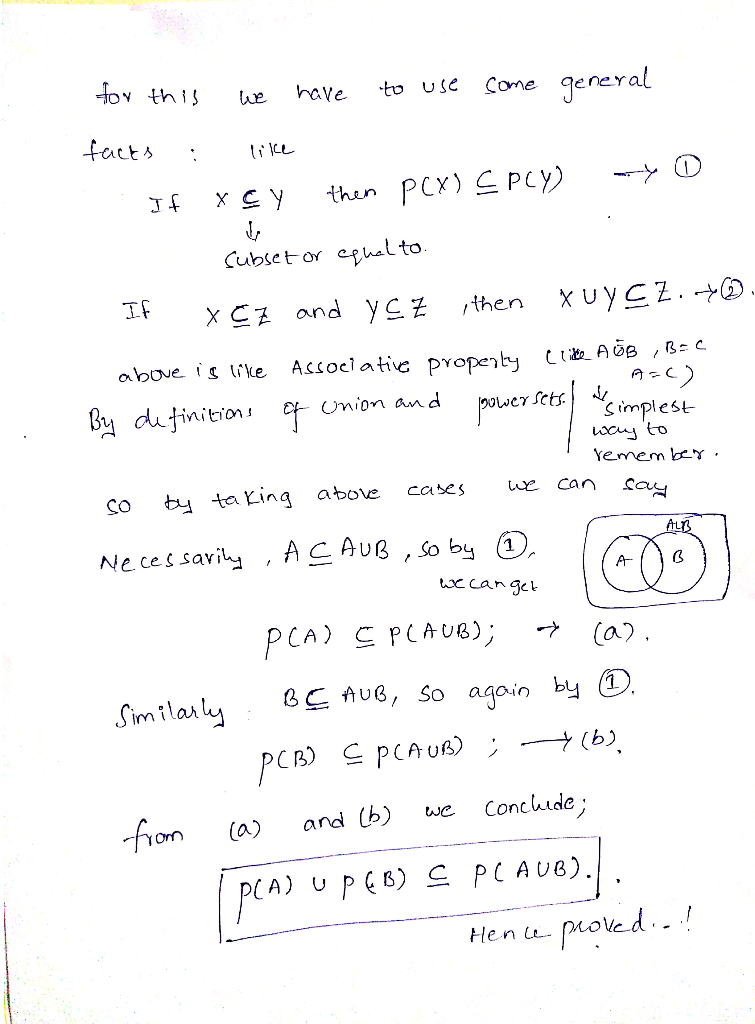 for this we have to use some general
facts : like
If X ⊆ Y then P(X) ⊆ P(Y) → ①
↓
subset or equal to.
If X ⊆ Z and Y ⊆ Z , then X U Y ⊆ Z. → ②.
above is like Associative property (like A B , B = C
A = C)
By definitions of Union and power sets. simplest
way to
remember.
so by taking above cases we can say
Necessarily , A ⊆ AUB , so by ①,
we can get
AUB
A B
P(A) ⊆ P(AUB); → (a).
Similarly B ⊆ AUB, so again by ①.
P(B) ⊆ P(AUB) ; → (b).
from (a) and (b) we conclude;
P(A) U P(B) ⊆ P(AUB). .
Hence proved..!